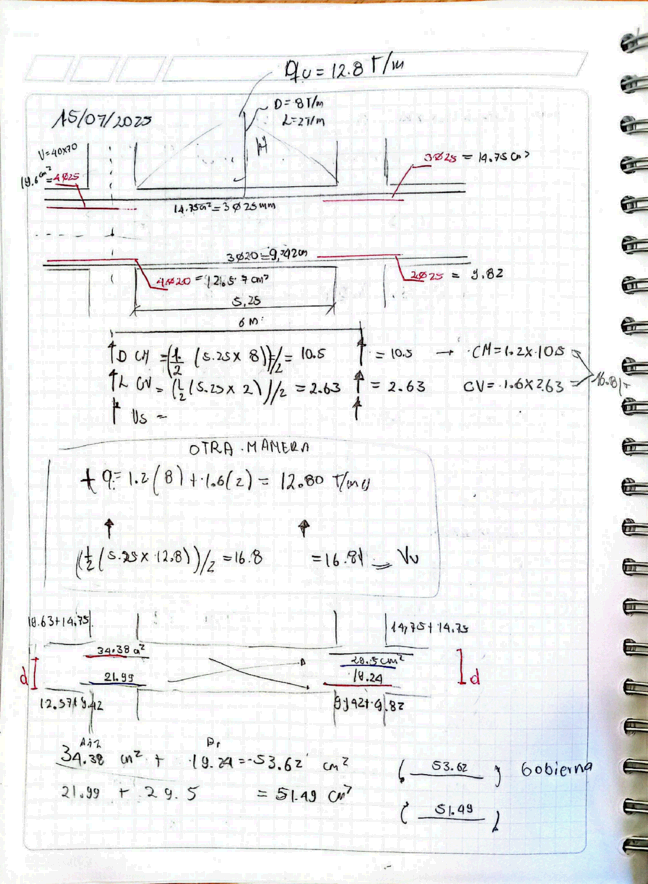 qu = 12.8 T/m
15/07/2025
D = 8T/m
L = 2T/m
V=40x70
3Ø25 = 14.75 cm²
4Ø25
M
14.75cm² = 3Ø25mm
3Ø20 = 9,42cm
4Ø20 = 12.57 cm²
2Ø25 = 9.82
5,25
6 m
D CM = (1/2 (5.25 x 8))/2 = 10.5 = 10.5 → CM = 1.2 x 10.5
L CV = (1/2 (5.25 x 2))/2 = 2.63 = 2.63 CV = 1.6 x 2.63
Us =
OTRA MANERA
q = 1.2(8) + 1.6(2) = 12.80 T/m
(1/2 (5.25 x 12.8))/2 = 16.8 = 16.8 Vu
19.63+14.75 14,75+14.75
34.38 cm² 29.5cm²
d 21.99 19.24 d
12.57+9.42 9,42+9.82
34.38 cm² + 19.24 = 53.62 cm² ( 53.62 ) Gobierna
21.99 + 29.5 = 51.49 cm² ( 51.49 )